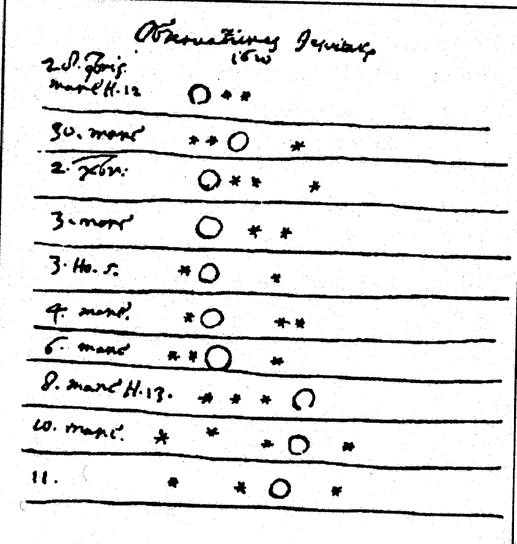 Observationes Jesuitarum
1610
2. S. 9bris.
mane H. 12
30. mane
2. Xbr:
3. mane
3. Ho. 5.
4. mane.
6. mane
8. mane H. 13.
10. mane.
11.